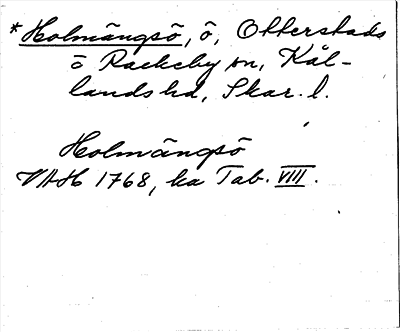 *Holmängsö, ö, Otterstads
o Rackeby sn, Kål-
lands hd, Skar. l.
Holmängsö
VAH 1768, ka Tab. VIII.